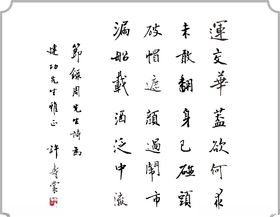 運交華蓋欲何求
未敢翻身已碰頭
破帽遮顏過鬧市
漏船載酒泛中流
節録周先生詩為
建功先生雅正 許壽裳